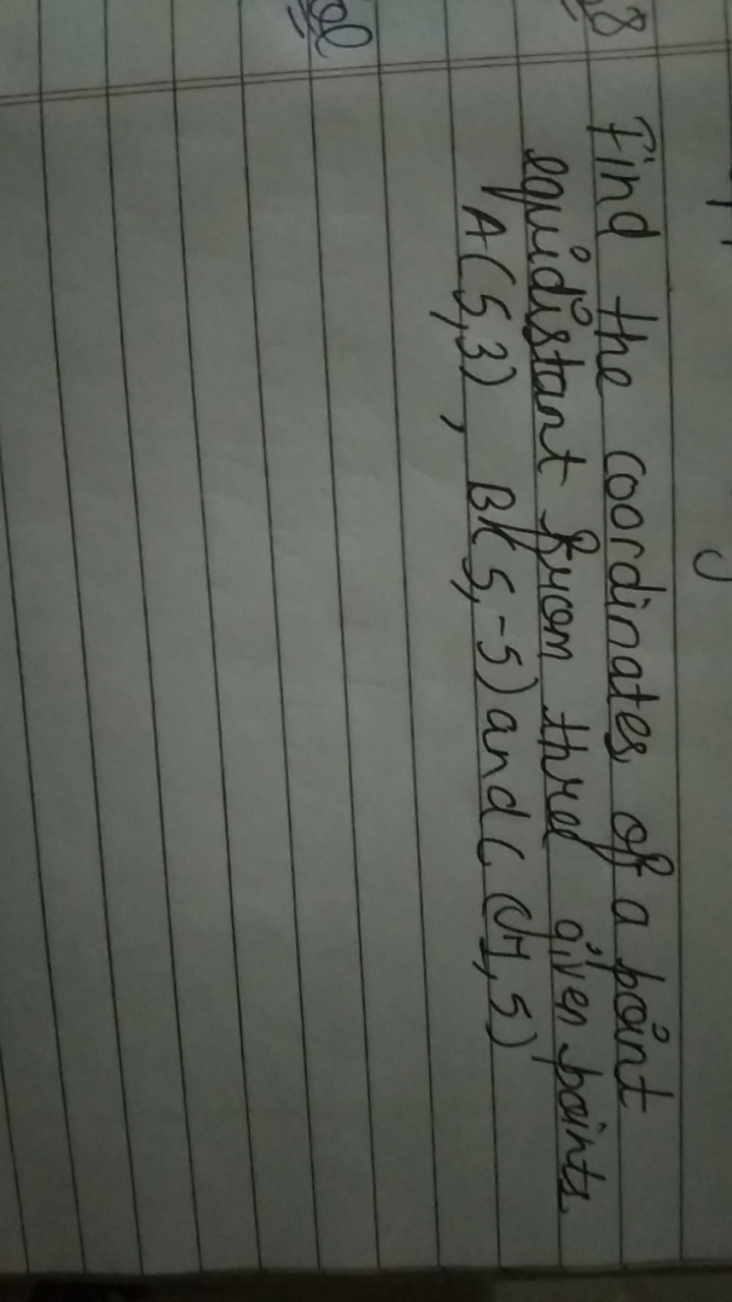 8
Find the coordinates of a point
equidistant from three given points
A(5,3), B(5,-5) and C
Sol